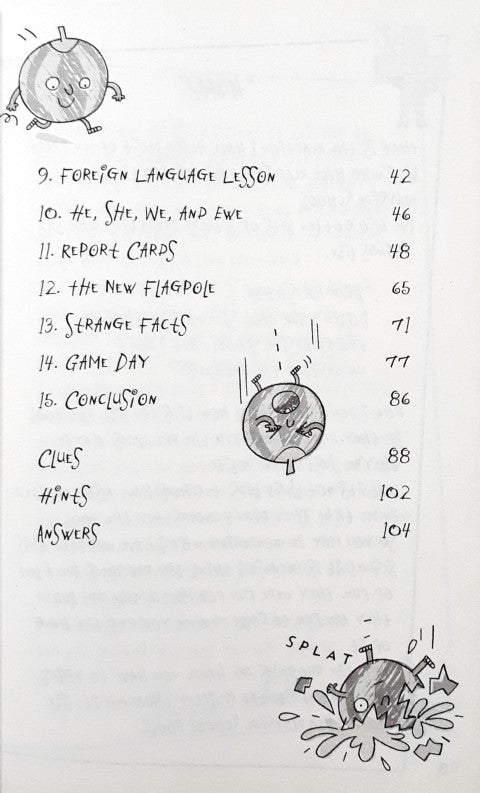 9. FOREIGN LANGUAGE LESSON 42
10. HE, SHE, WE, AND EWE 46
11. REPORT CARDS 48
12. THE NEW FLAGPOLE 65
13. STRANGE FACTS 71
14. GAME DAY 77
15. CONCLUSION 86
CLUES 88
HINTS 102
ANSWERS 104
SPLAT